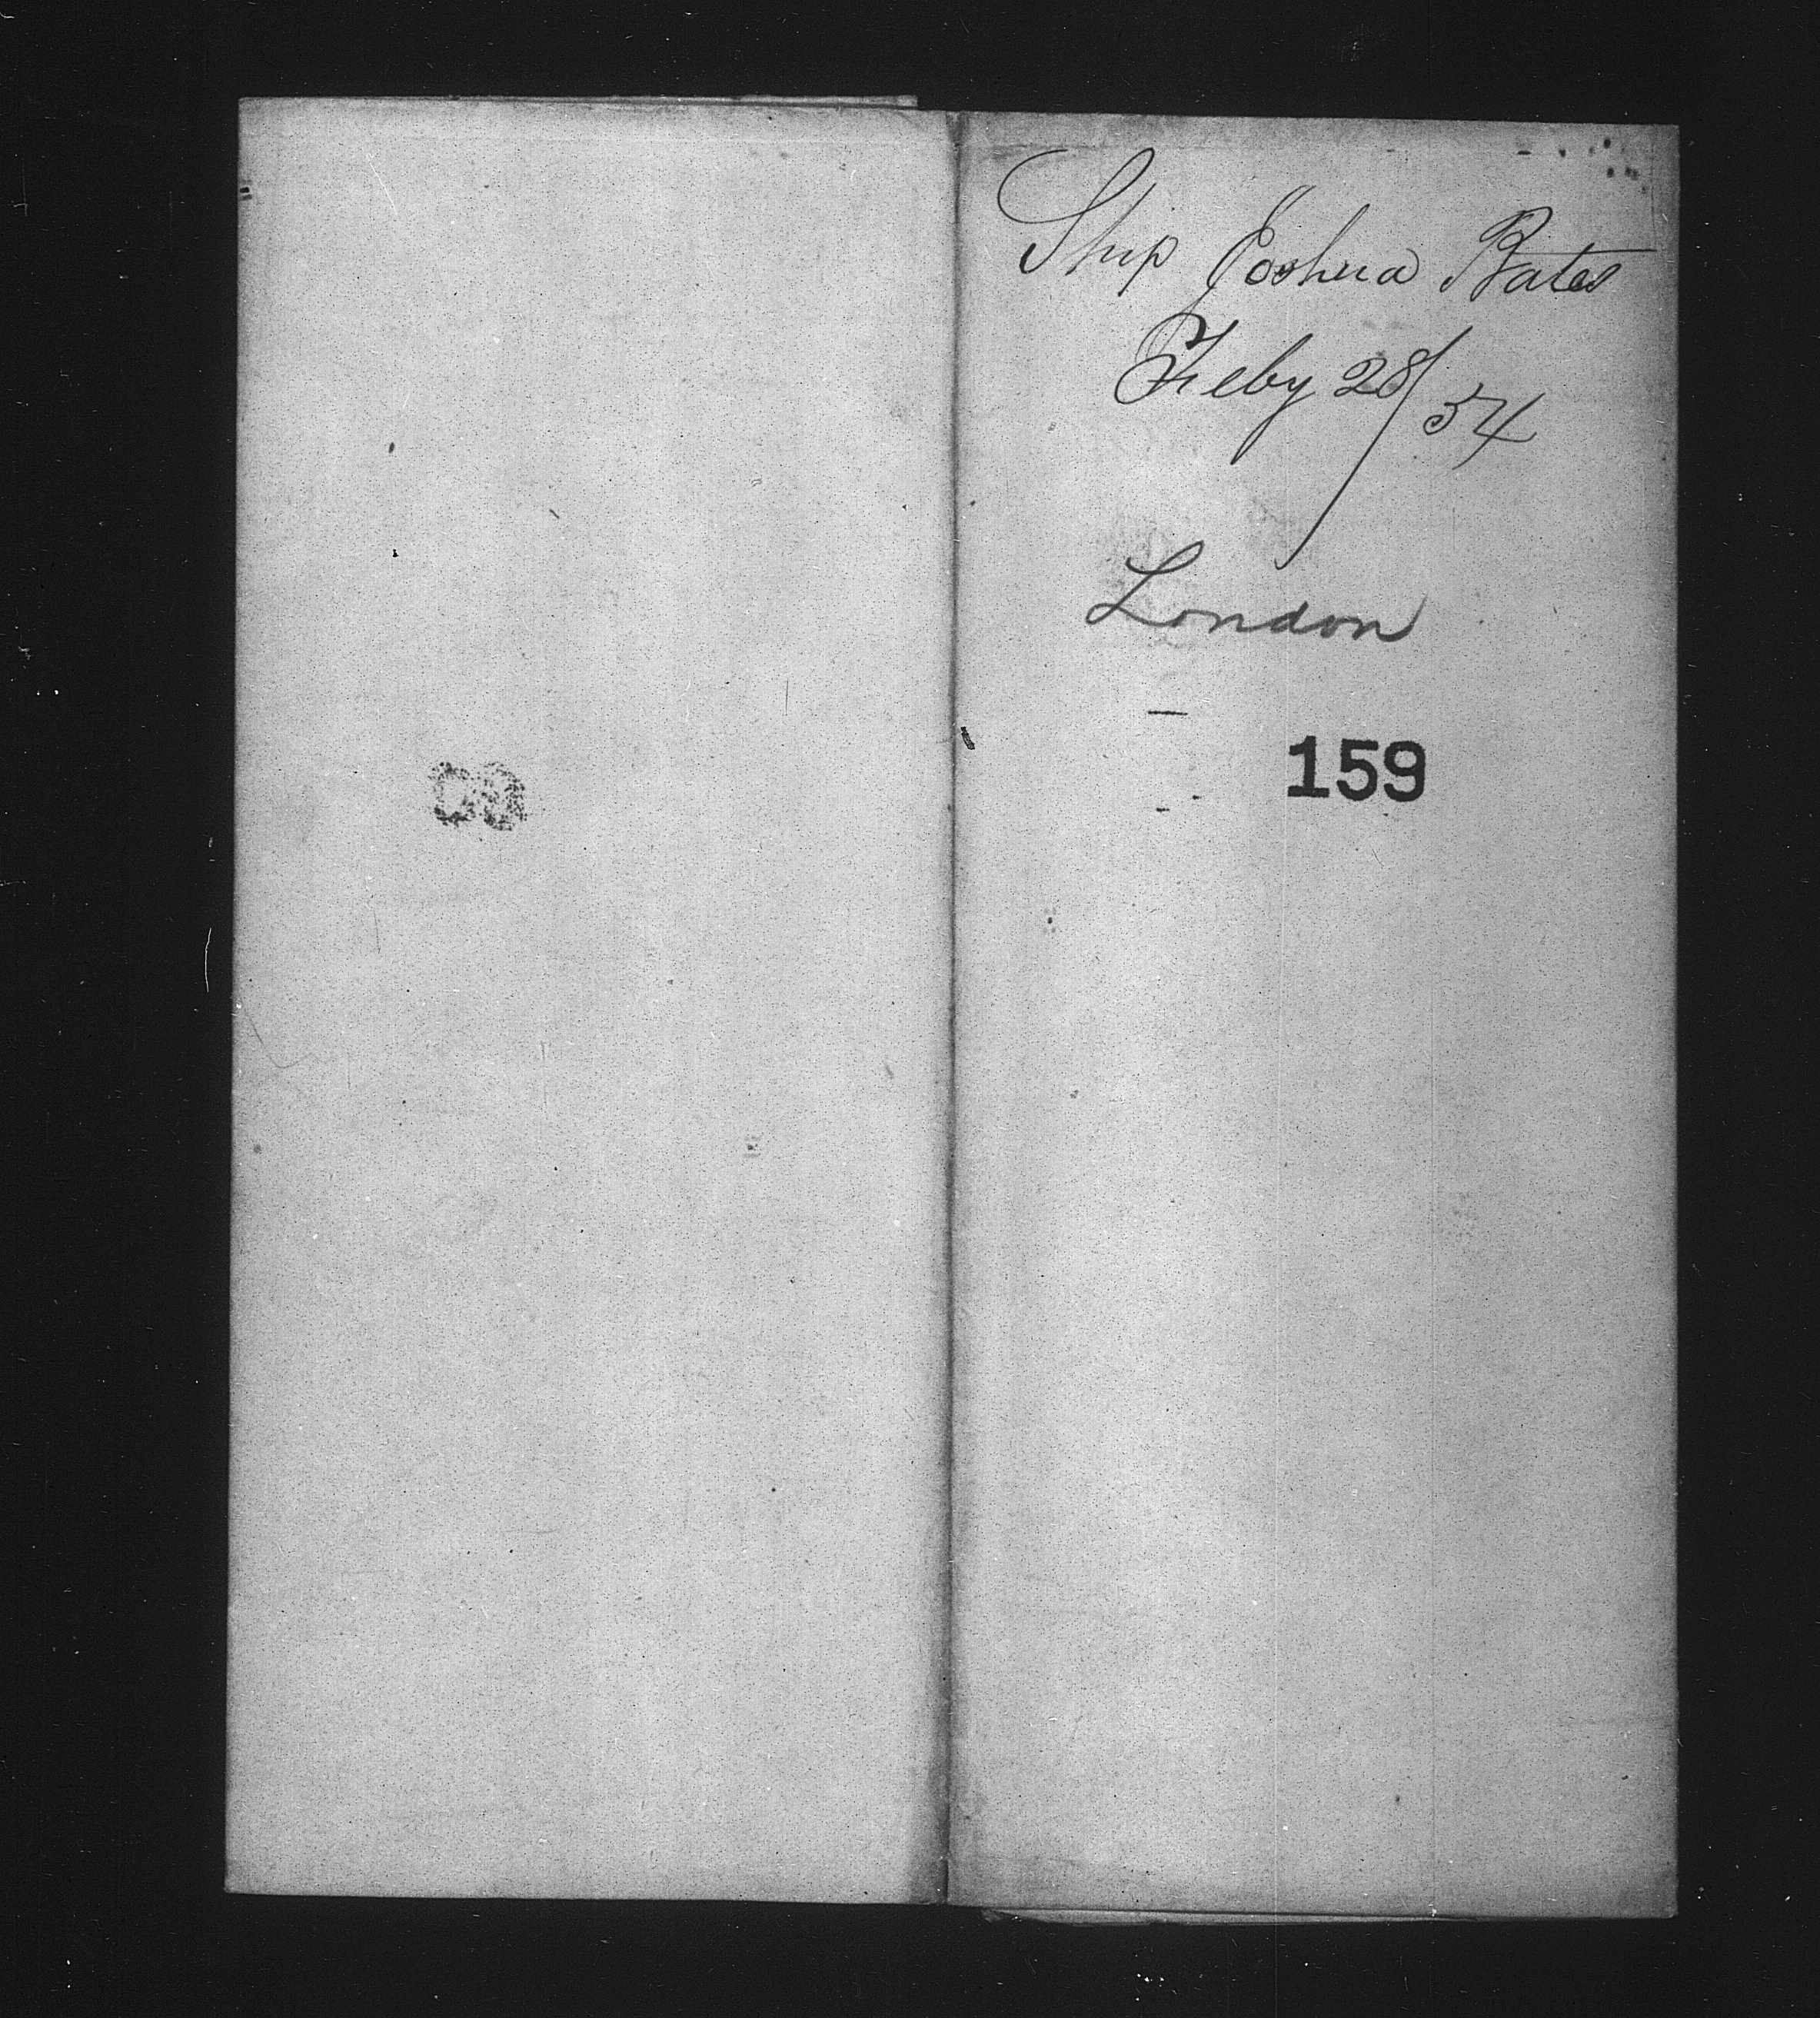 Ship Joshua Bates
Feby 28/54
London
159